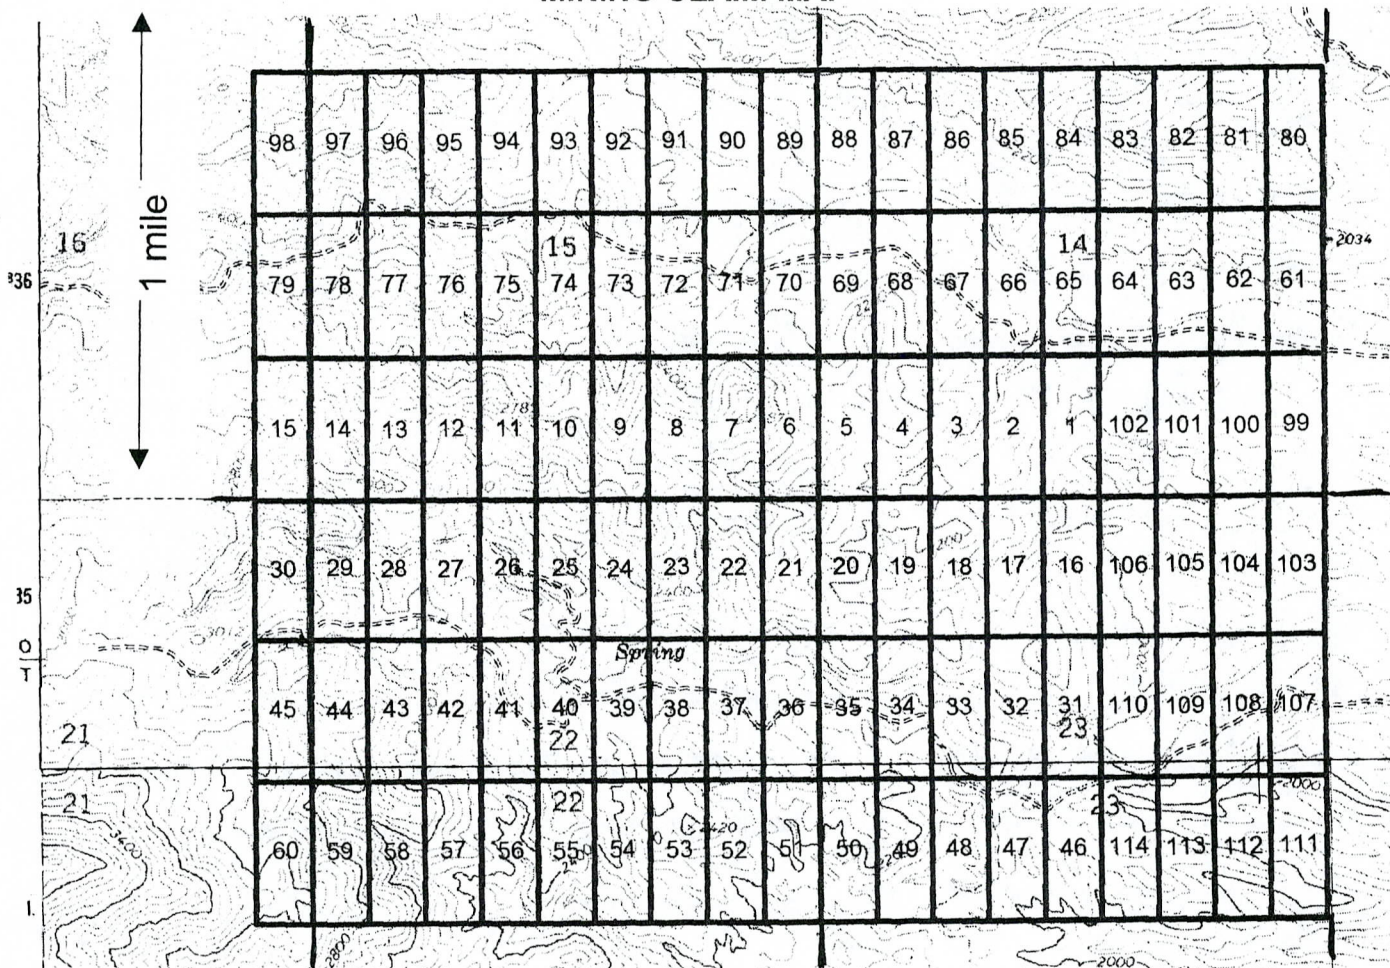 1 mile
98 97 96 95 94 93 92 91 90 89 88 87 86 85 84 83 82 81 80
16 15 14 2034
336 79 78 77 76 75 74 73 72 71 70 69 68 67 66 65 64 63 62 61
15 14 13 12 11 10 9 8 7 6 5 4 3 2 1 102 101 100 99
30 29 28 27 26 25 24 23 22 21 20 19 18 17 16 106 105 104 103
35
2400
O
T
Spring
45 44 43 42 41 40 39 38 37 36 35 34 33 32 31 110 109 108 107
21 22 23
21 22 23 2000
3400 2420
60 59 58 57 56 55 54 53 52 51 50 49 48 47 46 114 113 112 111
2800 2000